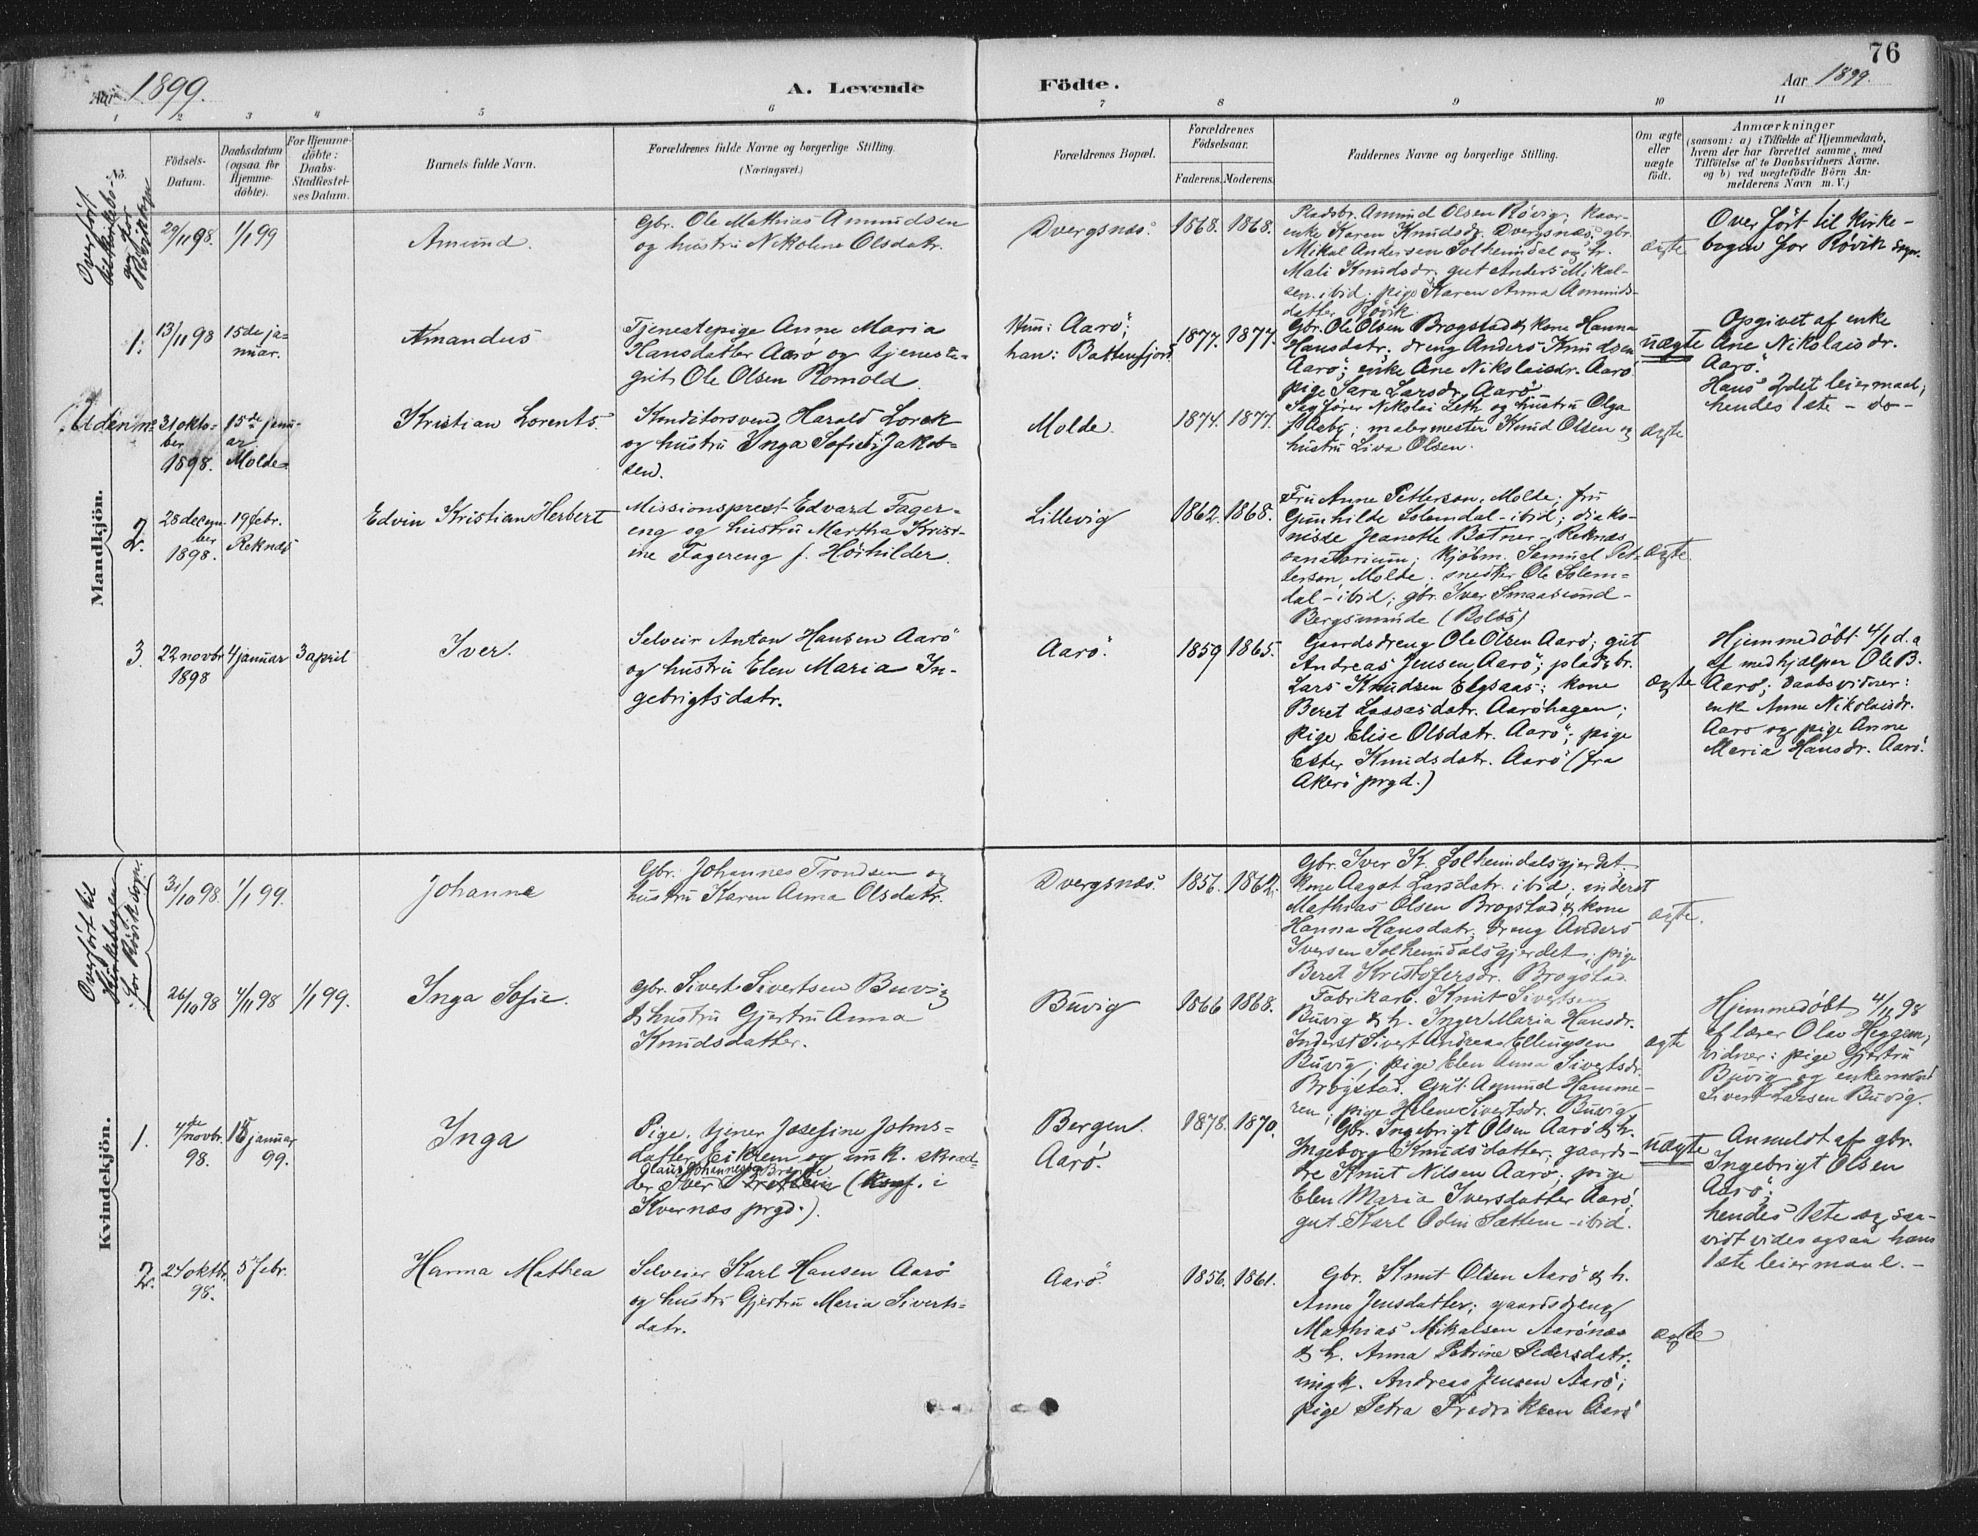 76
Aar 1899.
A. Levende Födte.
Aar 1899.
1 2 3 4 5 6 7 8 9 10 11
No.
Födsels-
Datum.
Daabsdatum
(ogsaa for
Hjemme-
döbte).
For Hjemme-
döbte:
Daabs-
Stadfæstel-
ses Datum.
Barnets fulde Navn.
Forældrenes fulde Navne og borgerlige Stilling.
(Næringsvei.)
Forældrenes Bopæl.
Forældrenes
Födselsaar.
Faderens. Moderens.
Faddernes Navne og borgerlige Stilling.
Om ægte
eller
uægte
födt.
Anmærkninger
(saasom: a) i Tilfælde af Hjemmedaab,
hvem der har forrettet samme, med
Tilföielse af to Daabsvidners Navne,
og b) ved uægtefödte Börn An-
melderens Navn m. V.)
Mandkjön.
Overført
til kirkebo-
gen for
Røvik sogn
29/11 98. 1/1 99
Amund.
Gbr. Ole Mathias Amundsen
og hustru Nikoline Olsdatr.
Dvergsnæs.
1868. 1868.
Pladsbr. Amund Olsen Røvig; kaar-
enke Karen Knudsdr. Dvergsnæs; gbr.
Mikal Andersen Solheimdal og h.
Mali Knudsdr.; gut Anders Mikal-
sen ibid; pige Karen Anna Amunds-
datter Røvik
ægte
Overført til Kirke-
bogen for Røvik sogn.
1. 13/11 98 15de ja-
nuar.
Amandus
Tjenestepige Anne Maria
Hansdatter Aarö og tjeneste-
gut Ole Olsen Romold.
Hun: Aarö;
han: Battenfjord
1877. 1877.
Gbr. Ole Olsen Brogstad & kone Hanna
Hansdatr.; dreng Anders Knudsen
Aarö; enke Ane Nikolaisdr. Aarö
pige Sara Larsdr. Aarö
uægte
Opgivet af enke
Ane Nikolaisdr.
Aarö.
Hans 2det leiermaal;
hendes 1ste - do -
Uden nr. 31 okto-
ber
1898.
15de janu-
ar
Molde
Kristian Lorents.
Konditorsvend Harald Lorck
og hustru Inga Sofie f. Jakob-
sen.
Molde.
1874. 1877.
Sagfører Nikolai Leth og hustru Olga
f. Aasby; malermester Knud Olsen og
hustru Liva Olsen.
ægte
2. 25 decem-
ber
1898.
19 febr.
Reknæs
Edvin Kristian Herbert
Missionsprest Edvard Fager-
eng og hustru Martha Krist-
ine Fagereng f. Hörhilder.
Lillevig
1862. 1868.
Fru Anne Petterson, Molde; fru
Gunhilde Solemdal - ibid; diako-
nisse Jeanette Botner - Reknæs
sanatorium; kjøbm. Samuel Pet-
terson, Molde; snedker Ole Solem-
dal - ibid; gbr. Iver Smaasund -
Bergsunde (Bolsö)
ægte.
3. 22 novbr
1898
4 januar 3 april
Iver.
Selveir Anton Hansen Aarö
og hustru Elen Maria In-
gebrigtsdatr.
Aarö.
1859 1865.
Gaardsdreng Ole Olsen Aarö; gut
Andreas Jensen Aarö; pladsbr.
Lars Knudsen Elgsaas; kone
Beret Lassesdatr. Aaröhagen;
pige Elise Olsdatr. Aarö; pige
Ester Knudsdatr. Aarö (fra
Akerö prgd.)
ægte
Hjemmedøbt 4/1 d.a
af medhjælper Ole B.
Aarö; daabsvidner:
enke Anne Nikolaisdr.
Aarö og pige Anne
Maria Hansdr. Aarö.
Kvindekjön.
Overført til
Kirkebogen
for Røvik sogn.
31/10 98. 1/1 99.
Johanna
Gbr. Johannes Trondsen og
hustru Karen Anna Olsdatr.
Dvergsnæs.
1856. 1862.
Gbr. Iver K. Solheimdalsgjerdet,
kone Aagot Larsdatr. ibid; inderst
Mathias Olsen Brogstad & kone
Hanna Hansdatr; dreng Anders
Iversen Solheimdalsgjerdet; pige
Beret Kristofersdr. Brogstad.
ægte.
26/10 98 4/11 98 1/1 99.
Inga Sofie.
Gbr. Sivert Sivertsen Buvig
& hustru Gjertru Anna
Knudsdatter.
Buvig
1866 1868.
Fabrikarb. Knut Sivertsen
Buvig & h. Inger Maria Hansdr.
Inderst Sivert Andreas Ellingsen
Buvig; pige Elen Anna Sivertsdr.
Brogstad. Gut Amund Hamme-
ren; pige Helene Sivertsdr. Buvig
ægte
Hjemmedøbt 4/11 98
af lærer Olav Heggem;
vidner: pige Gjertru
Buvig og enkemand
Sivert Larsen Buvig.
1. 4de novbr.
98.
15 januar
99.
Inga
Pige, tjener Josefine Johns-
datter Eiklem og unk. skræd-
Claus Johannesen Brende
der Iver (Konf. i
Kvernæs prgd.).
Bergen.
Aarö.
1878. 1870.
Gbr. Ingebrigt Olsen Aarö & h.
Ingeborg Knudsdatter; gaards-
dre Knut Nilsen Aarö; pige
Elen Maria Iversdatter Aarö;
gut Karl Odin Sættem - ibid.
uægte
Anmeldt af gbr.
Ingebrigt Olsen
Aarö;
hendes 1ste og saa-
vidt vides ogsaa hans
1ste leiermaal. -
2. 24 oktbr.
98.
5 febr.
Hanna Mathea
Selveier Karl Hansen Aarö
og hustru Gjertru Maria Siverts-
datr.
Aarö.
1856. 1861.
Gbr. Knut Olsen Aarö & h.
Anne Jensdatter; gaardsdreng
Mathias Mikalsen Aarönæs
& h. Anna Petrine Pedersdatr.;
ungk. Andreas Jensen Aarö;
pige Petra Fredriksen Aarö
ægte